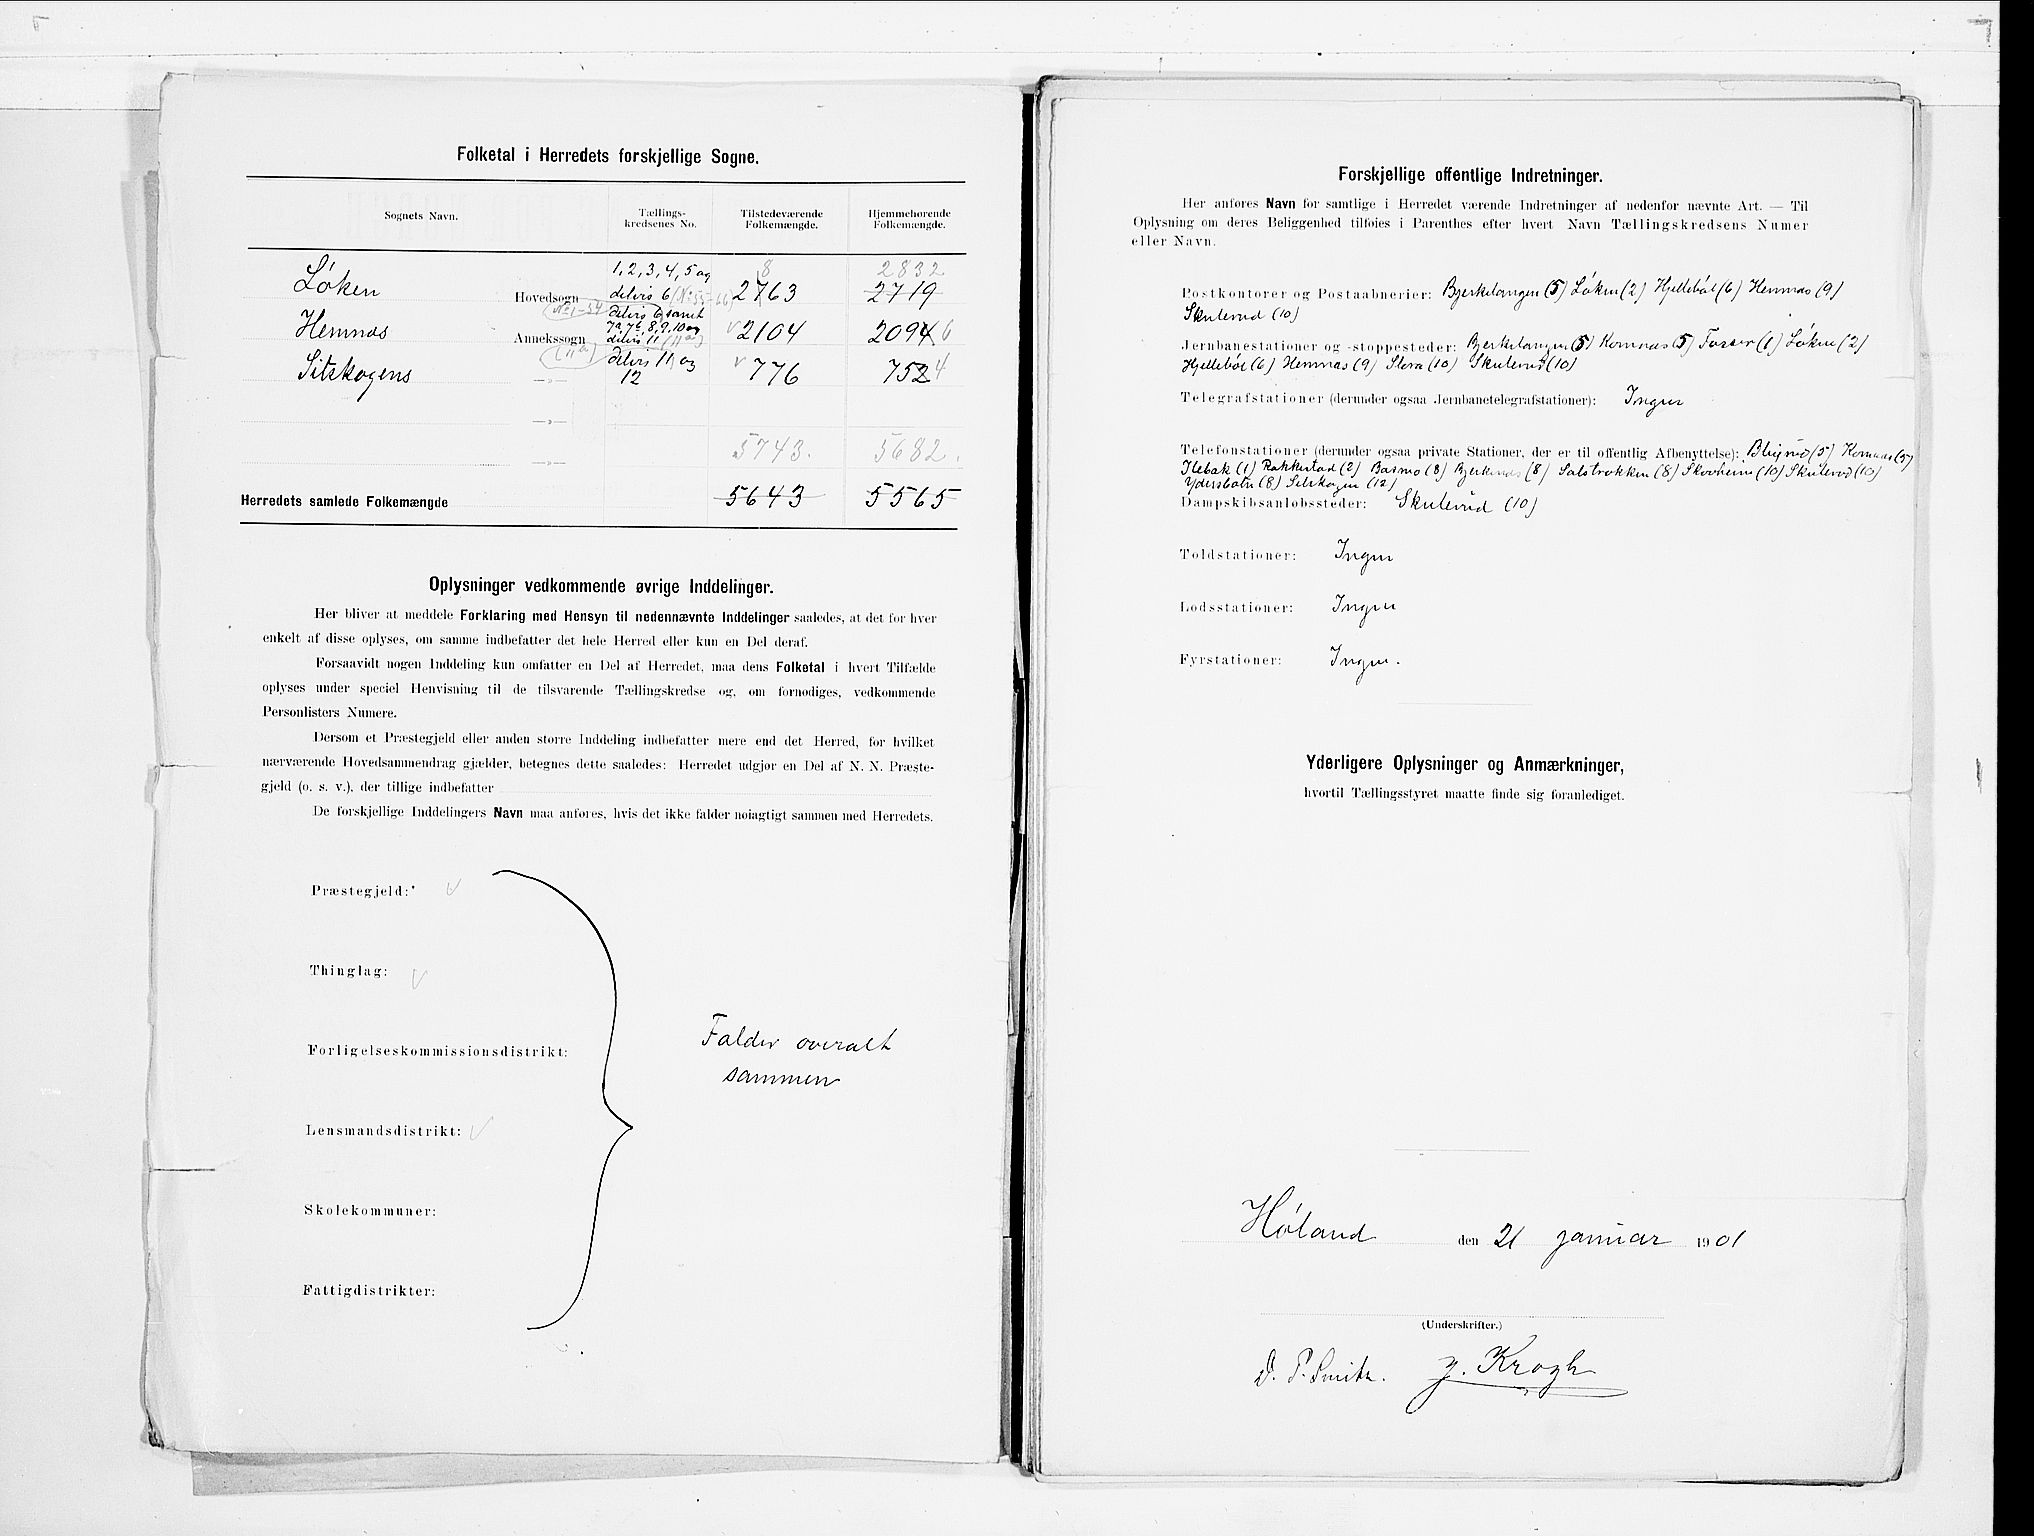 Folketal i Herredets forskjellige Sogne.
Sognets Navn.
Tællings-
kredsenes No.
Tilstedeværende
Folkemængde.
Hjemmehørende
Folkemængde.
Løken Hovedsogn 1, 2, 3, 4, 5 og 8 2832
delvis 6 (No 55-66) 2763 2719
(No 1-54) delvis 6, samt
Hemnæs Annekssogn 7a, 7b, 8, 9, 10 og 2104 2094 6
delvis 11 (11a)
(11a) delvis 11, og
Sitskogens —»— 12 776 752 4
—»—
—»— 5743. 5682.
Herredets samlede Folkemængde 5643 5565
Oplysninger vedkommende øvrige Inddelinger.
Her bliver at meddele Forklaring med Hensyn til nedennævnte Inddelinger saaledes, at det for hver
enkelt af disse oplyses, om samme indbefatter det hele Herred eller kun en Del deraf.
Forsaavidt nogen Inddeling kun omfatter en Del af Herredet, maa dens Folketal i hvert Tilfælde
oplyses under speciel Henvisning til de tilsvarende Tællingskredse og, om fornødiges, vedkommende
Personlisters Numere.
Dersom et Præstegjeld eller anden større Inddeling indbefatter mere end det Herred, for hvilket
nærværende Hovedsammendrag gjælder, betegnes dette saaledes: Herredet udgjør en Del af N. N. Præste-
gjeld (o. s. v.), der tillige indbefatter
De forskjellige Inddelingers Navn maa anføres, hvis det ikke falder nøiagtigt sammen med Herredets.
Præstegjeld:
Thinglag:
Forligelseskommissionsdistrikt:
Falder overalt
sammen
Lensmandsdistrikt:
Skolekommuner:
Fattigdistrikter:
Forskjellige offentlige Indretninger.
Her anføres Navn for samtlige i Herredet værende Indretninger af nedenfor nævnte Art. — Til
Oplysning om deres Beliggenhed tilføies i Parenthes efter hvert Navn Tællingskredsens Numer
eller Navn.
Postkontorer og Postaabnerier: Bjerkelangen (5) Løken (2) Hjellebøl (6) Hemnæs (9)
Skulerud (10)
Jernbanestationer og -stoppesteder: Bjerkelangen (5) Komnæs (5) Fosser (1) Løken (2)
Hjellebøl (6) Hemnæs (9) Slora (10) Skulerud (10)
Telegrafstationer (derunder ogsaa Jernbanetelegrafstationer): Ingen
Telefonstationer (derunder ogsaa private Stationer, der er til offentlig Afbenyttelse): (5) Komnæs (5)
Ilebæk (1) Rakkestad (2) Basmo (8) Bjerknæs (8) (8) Skovheim (10) Skulerud (10)
Ydersbotn (8) Setskogen (12)
Dampskibsanløbssteder: Skulerud (10)
Toldstationer: Ingen
Lodsstationer: Ingen
Fyrstationer: Ingen.
Yderligere Oplysninger og Anmærkninger,
hvortil Tællingsstyret maatte finde sig foranlediget.
Høland den 21 januar 1901
(Underskrifter.)
O. P. Smith. J. Krogh